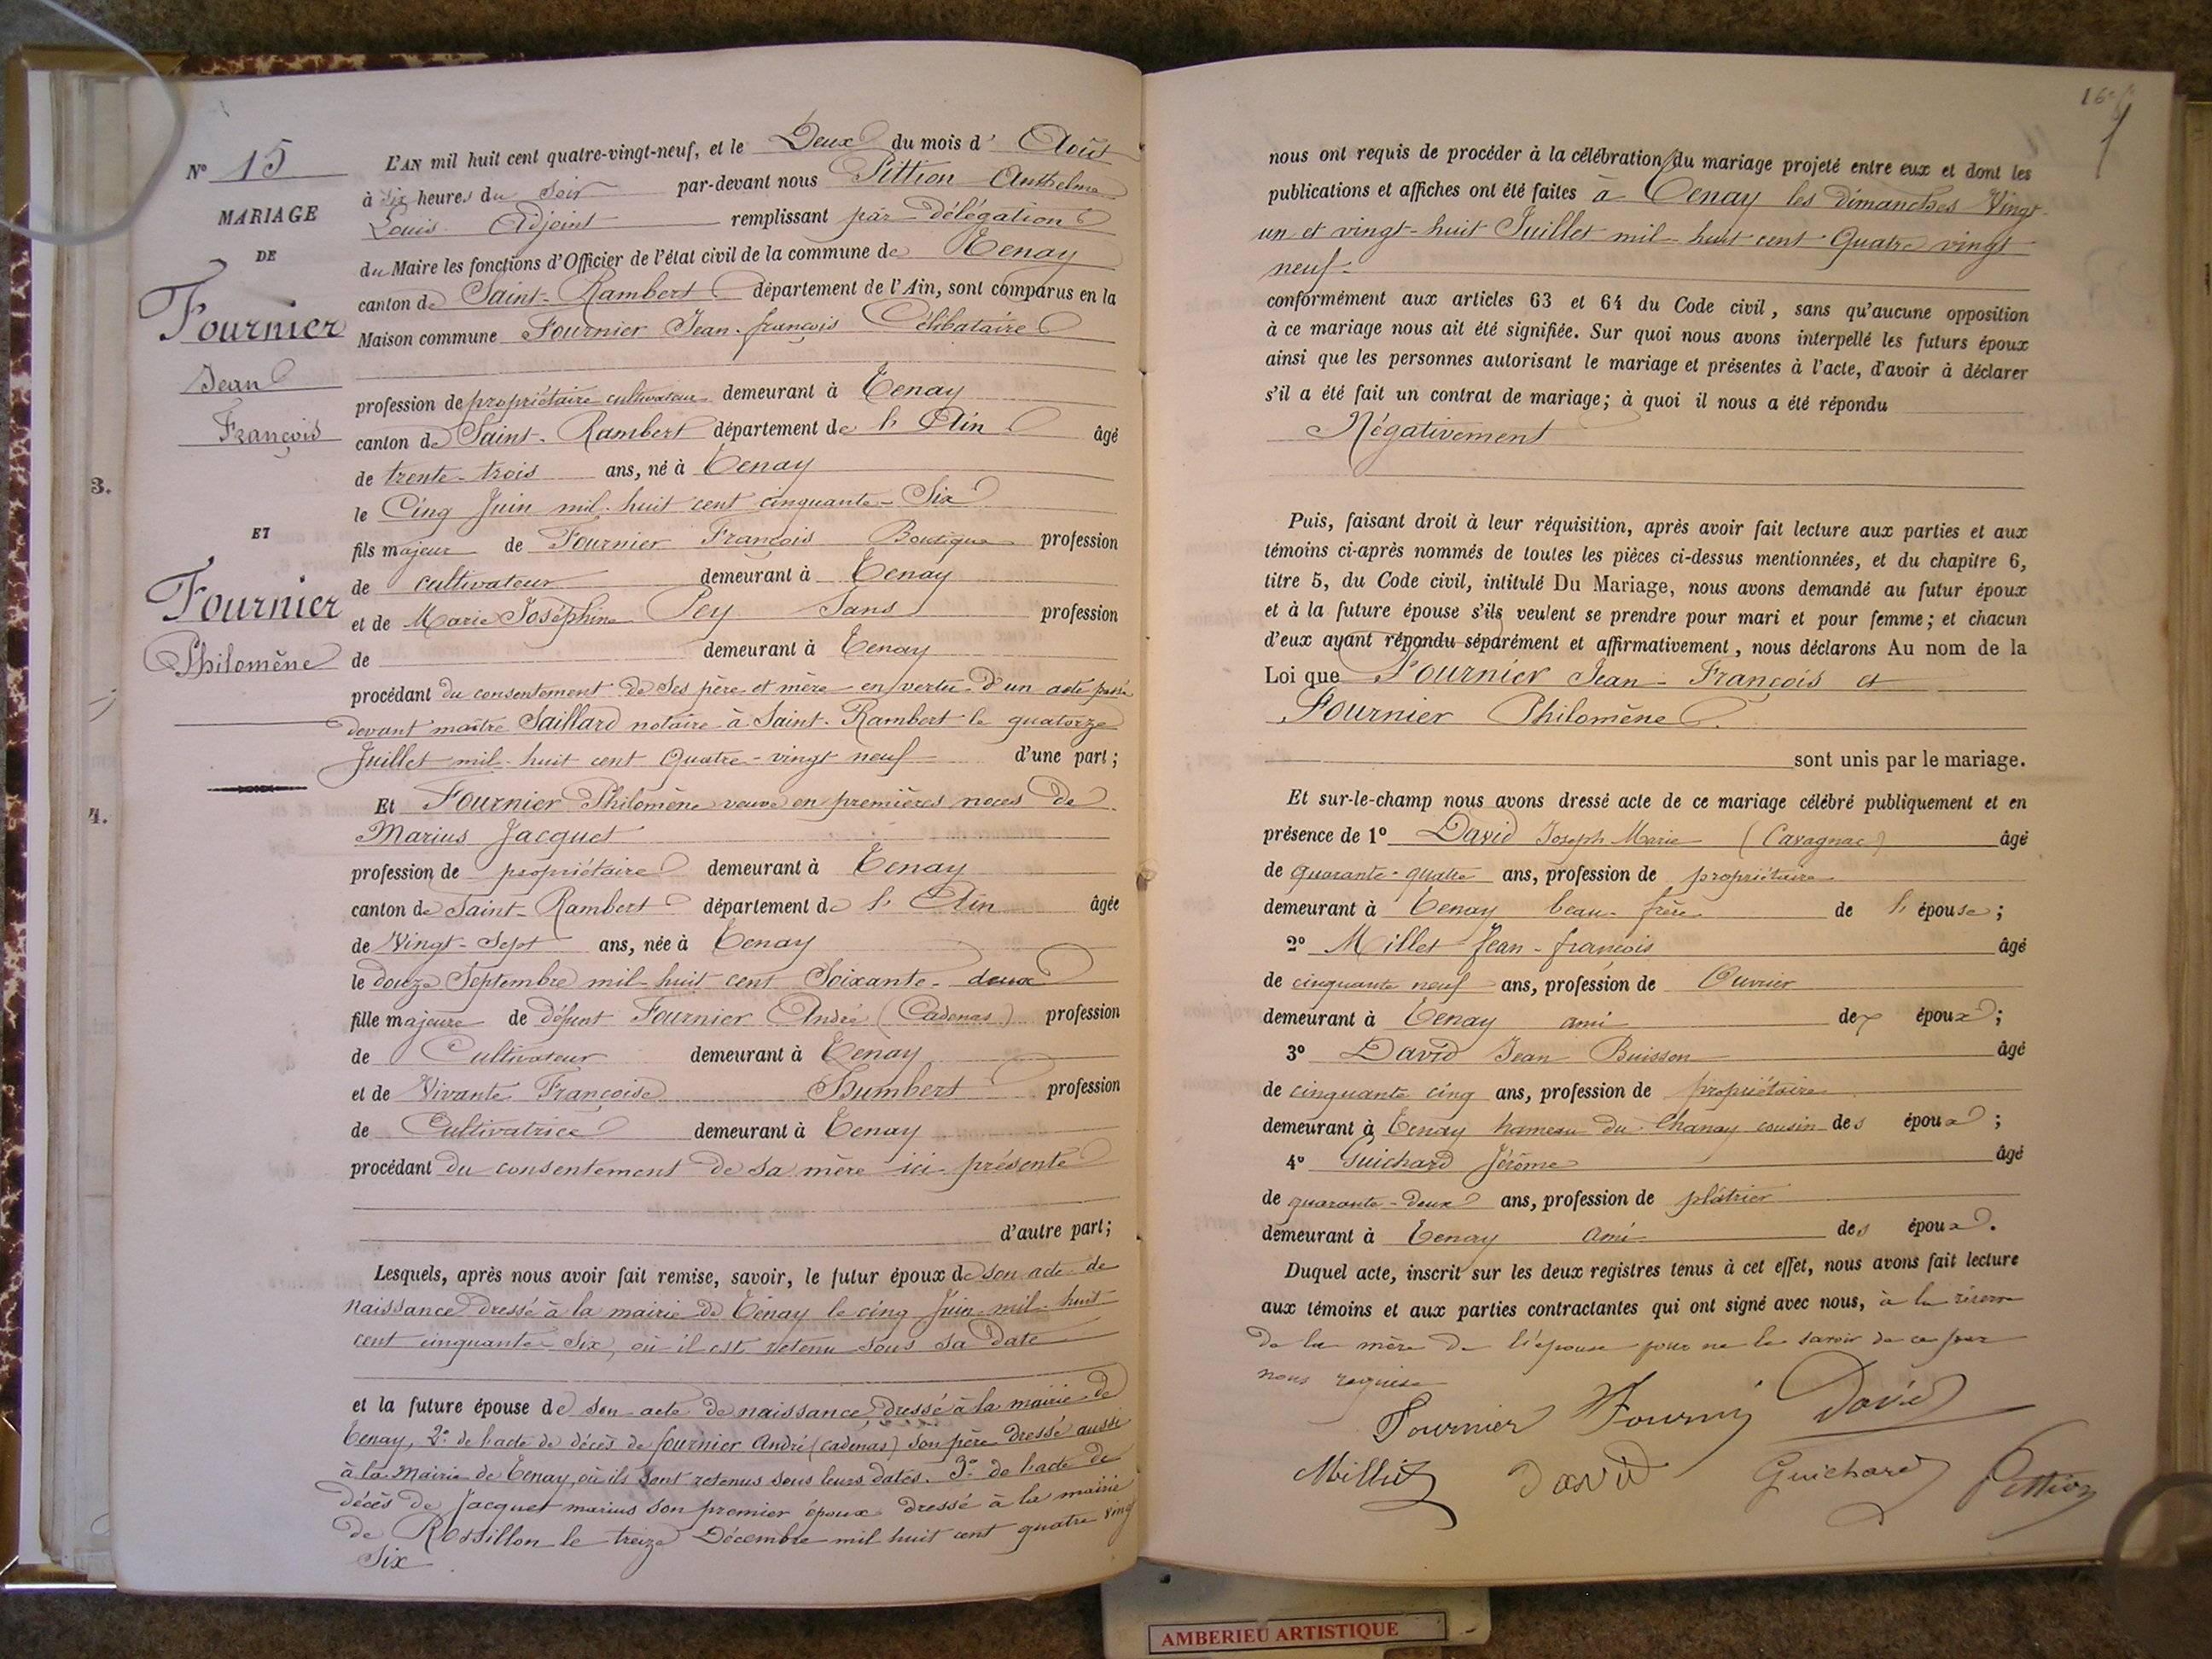 N° 15
MARIAGE
DE
Fournier
Jean
François
ET
Fournier
Philomène
3.
4.
L'AN mil huit cent quatre-vingt-neuf, et le Deux du mois d' Août
à six heures du Soir par-devant nous Pittion Anthelme
Louis Adjoint remplissant par délégation
du Maire les fonctions d'Officier de l'état civil de la commune de Tenay
canton de Saint-Rambert département de l'Ain, sont comparus en la
Maison commune Fournier Jean-françois Célibataire
profession de propriétaire cultivateur demeurant à Tenay
canton de Saint-Rambert département de l'Ain âgé
de trente-trois ans, né à Tenay
le Cinq Juin mil-huit cent cinquante-Six
fils majeur de Fournier François Boutique profession
de cultivateur demeurant à Tenay
et de Marie Joséphine Pey Sans profession
de demeurant à Tenay
procédant du consentement de ses père et mère en vertu d'un acte passé
devant maître Saillard notaire à Saint-Rambert le quatorze
Juillet mil-huit cent Quatre-vingt neuf d'une part;
Et Fournier Philomène veuve en premières noces de
Marius Jacquet
profession de propriétaire demeurant à Tenay
canton de Saint-Rambert département de l'Ain âgée
de Vingt-Sept ans, née à Tenay
le douze Septembre mil-huit cent Soixante-deux
fille majeure de défunt Fournier André (Cadenas) profession
de Cultivateur demeurant à Tenay
et de Vivante Françoise Humbert profession
de Cultivatrice demeurant à Tenay
procédant du consentement de sa mère ici-présente
d'autre part;
Lesquels, après nous avoir fait remise, savoir, le futur époux de son acte de
naissance dressé à la mairie de Tenay le cinq Juin mil-huit
cent cinquante-Six, où il est retenu sous sa date
et la future épouse de son acte de naissance dressé à la mairie de
Tenay, 2° de l'acte de décès de fournier André (cadenas) son père dressé aussi
à la Mairie de Tenay, où ils sont retenus sous leurs dates. 3° de l'acte de
décès de Jacquet marius son premier époux dressé à la mairie
de Rossillon le treize Décembre mil huit cent quatre vingt
Six
16
nous ont requis de procéder à la célébration du mariage projeté entre eux et dont les
publications et affiches ont été faites à Tenay les dimanches Vingt
un et vingt-huit Juillet mil-huit cent Quatre vingt
neuf.
conformément aux articles 63 et 64 du Code civil, sans qu'aucune opposition
à ce mariage nous ait été signifiée. Sur quoi nous avons interpellé les futurs époux
ainsi que les personnes autorisant le mariage et présentes à l'acte, d'avoir à déclarer
s'il a été fait un contrat de mariage; à quoi il nous a été répondu
Négativement
Puis, faisant droit à leur réquisition, après avoir fait lecture aux parties et aux
témoins ci-après nommés de toutes les pièces ci-dessus mentionnées, et du chapitre 6,
titre 5, du Code civil, intitulé Du Mariage, nous avons demandé au futur époux
et à la future épouse s'ils veulent se prendre pour mari et pour femme; et chacun
d'eux ayant répondu séparément et affirmativement, nous déclarons Au nom de la
Loi que Fournier Jean-François et
Fournier Philomène
sont unis par le mariage.
Et sur-le-champ nous avons dressé acte de ce mariage célébré publiquement et en
présence de 1° David Joseph Marie (Cavagnac) âgé
de quarante-quatre ans, profession de propriétaire
demeurant à Tenay beau-frère de l'épouse;
2° Millet Jean-françois âgé
de cinquante neuf ans, profession de Ouvrier
demeurant à Tenay ami des époux;
3° David Jean Buisson âgé
de cinquante cinq ans, profession de propriétaire
demeurant à Tenay hameau du Chanay cousin des époux;
4° Guichard Jérôme âgé
de quarante-deux ans, profession de plâtrier
demeurant à Tenay ami des époux.
Duquel acte, inscrit sur les deux registres tenus à cet effet, nous avons fait lecture
aux témoins et aux parties contractantes qui ont signé avec nous, à la réserve
de la mère de l'épouse pour ne le savoir de ce par
nous requise
Fournier Fournier David
Milliet David Guichard Pittion
AMBERIEU ARTISTIQUE